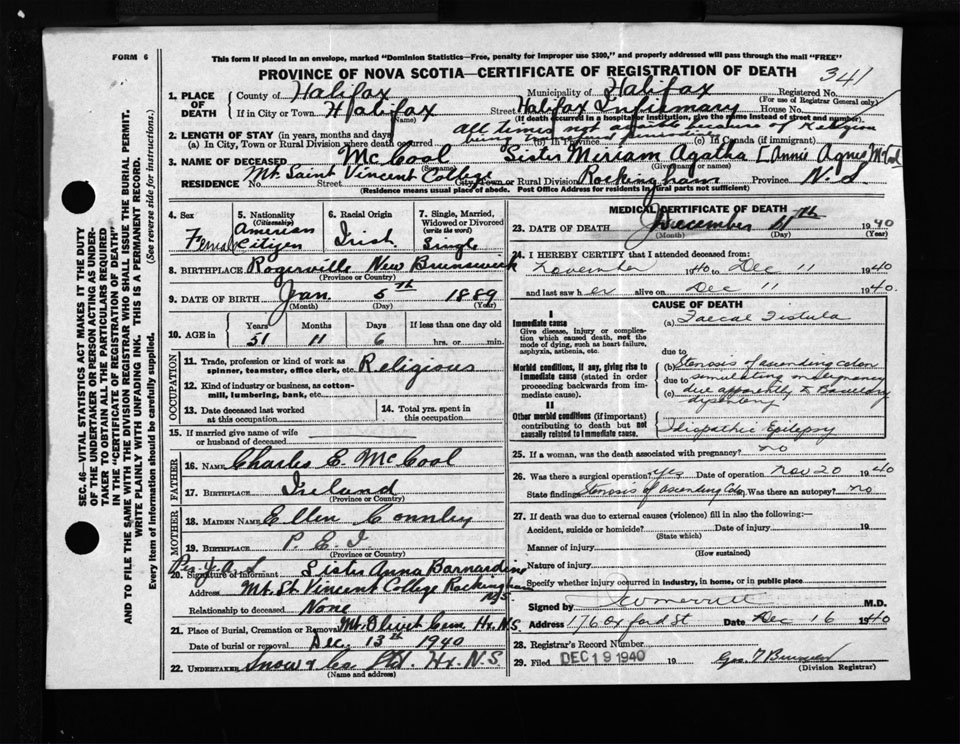 FORM 6
This form if placed in an envelope, marked "Dominion Statistics—Free, penalty for improper use $300," and properly addressed will pass through the mail "FREE"
PROVINCE OF NOVA SCOTIA—CERTIFICATE OF REGISTRATION OF DEATH
341
1. PLACE OF DEATH
County of Halifax Municipality of Halifax Registered No.
(For use of Registrar General only)
If in City or Town Halifax Street Halifax Infirmary House No.
(Name) (If death occurred in a hospital or institution, give the name instead of street and number)
2. LENGTH OF STAY (in years, months and days) All times not because of Religion
(a) In City, Town or Rural Division where death occurred (b) In Province (c) In Canada (if immigrant)
3. NAME OF DECEASED McCool Sister Miriam Agatha [Annie Agnes McCool
(Surname) (Given name or names)
RESIDENCE No. Mt. Saint Vincent College Street City, Town or Rural Division Rockingham Province N.S.
(Residence means usual place of abode. Post Office Address for residents in rural parts not sufficient)
4. Sex Female
5. Nationality (Citizenship) American Citizen
6. Racial Origin Irish
7. Single, Married, Widowed or Divorced (write the word) Single
8. BIRTHPLACE Rogersville New Brunswick
(Province or Country)
9. DATE OF BIRTH Jan. 5th 1889
(Month) (Day) (Year)
10. AGE in Years 51 Months 11 Days 6 If less than one day old hrs. or min.
OCCUPATION
11. Trade, profession or kind of work as spinner, teamster, office clerk, etc. Religious
12. Kind of industry or business, as cotton-mill, lumbering, bank, etc.
13. Date deceased last worked at this occupation
14. Total yrs. spent in this occupation
15. If married give name of wife or husband of deceased
FATHER
16. NAME Charles E. McCool
17. BIRTHPLACE Ireland
(Province or Country)
MOTHER
18. MAIDEN NAME Ellen Connley
19. BIRTHPLACE P. E. I.
(Province or Country)
20. Signature of Informant Sister Anna Barnardine
Address Mt. St. Vincent College Rockingham N.S.
Relationship to deceased None
21. Place of Burial, Cremation or Removal Mt. Olivet Cem. Hx. N.S.
Date of burial or removal Dec. 13th 1940
22. UNDERTAKER Snow & Co. Ltd. Hx. N.S.
(Name and address)
MEDICAL CERTIFICATE OF DEATH
23. DATE OF DEATH December 11th 1940
(Month) (Day) (Year)
24. I HEREBY CERTIFY that I attended deceased from:
November 1940 to Dec 11 1940
and last saw her alive on Dec 11 1940.
CAUSE OF DEATH
I
Immediate cause
Give disease, injury or complication which caused death, not the mode of dying, such as heart failure, asphyxia, asthenia, etc.
(a) Faecal Fistula
due to
Morbid conditions, if any, giving rise to immediate cause (stated in order proceeding backwards from immediate cause).
(b) Stenosis of ascending colon
due to simulating malignancy
(c) due apparently to bacillary dysentery
II
Other morbid conditions (if important) contributing to death but not causally related to immediate cause.
Idiopathic Epilepsy
25. If a woman, was the death associated with pregnancy? no
26. Was there a surgical operation? yes Date of operation Nov 20 1940
State finding Stenosis of ascending Colon Was there an autopsy? no
27. If death was due to external causes (violence) fill in also the following:—
Accident, suicide or homicide? Date of injury 19
(State which)
Manner of injury
(How sustained)
Nature of injury
Specify whether injury occurred in industry, in home, or in public place
Signed by M.D.
Address 176 Oxford St Date Dec 16 1940
28. Registrar's Record Number
29. Filed DEC 19 1940 19
(Division Registrar)
SEC. 46—VITAL STATISTICS ACT MAKES IT THE DUTY
OF THE UNDERTAKER OR PERSON ACTING AS UNDER-
TAKER TO OBTAIN ALL THE PARTICULARS REQUIRED
IN THE "CERTIFICATE OF REGISTRATION OF DEATH"
AND TO FILE THE SAME WITH THE DIVISION REGISTRAR WHO SHALL ISSUE THE BURIAL PERMIT.
WRITE PLAINLY WITH UNFADING INK. THIS IS A PERMANENT RECORD.
Every item of information should be carefully supplied. (See reverse side for instructions.)